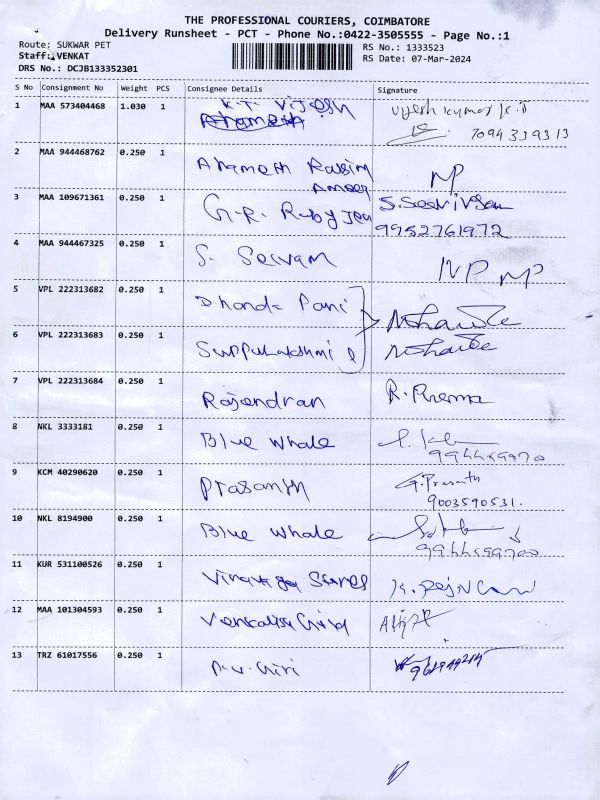 THE PROFESSIONAL COURIERS, COIMBATORE
Delivery Runsheet - PCT - Phone No.:0422-3505555 - Page No.:1
Route: SUKWAR PET
RS No.: 1333523
Staff: VENKAT
RS Date: 07-Mar-2024
DRS No.: DCJB133352301
S No Consignment No Weight PCS Consignee Details Signature
1 MAA 573404468 1.030 1 K.T. Vijesh
7094339313
2 MAA 944468762 0.250 1 NP
3 MAA 109671361 0.250 1 G.R. Ruby
9952761972
4 MAA 944467325 0.250 1 S. Selvam NP NP
5 VPL 222313682 0.250 1 Dhanda Pani
6 VPL 222313683 0.250 1
7 VPL 222313684 0.250 1 Rajendran R. Prema
8 NKL 3333181 0.250 1 Blue Whale
9 KCM 40290620 0.250 1 Prasanth G. Prasanth
9003590531.
10 NKL 8194900 0.250 1 Blue Whale
11 KUR 531100526 0.250 1 Vinayaga Stores
12 MAA 101304593 0.250 1
13 TRZ 61017556 0.250 1